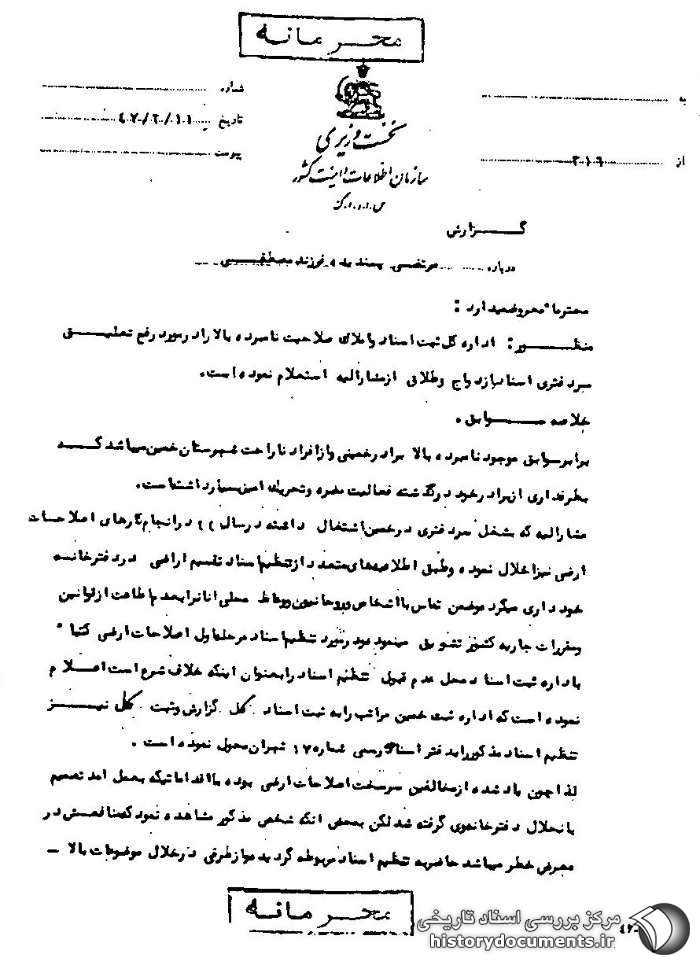 محرمانه
به
شماره
تاریخ ۴۷/۲/۱۱
از ۳۰۱۶
پیوست
نخست وزیری
سازمان اطلاعات و امنیت کشور
س.ا.و.ا.ک
گزارش
درباره مرتضی پسندیده فرزند مصطفی
محترما معروضمیدارد :
منظور: اداره کل ثبت اسناد و املاک صلاحیت نامبرده بالا را در مورد رفع تعلیق
سردفتری اسناد ازدواج و طلاق از مشارالیه استعلام نموده است.
خلاصه سوابق .
برابر سوابق موجود نامبرده بالا برادر خمینی و از افراد ناراحت شهرستان خمین میباشد که
بطرفداری از برادر خود در گذشته فعالیت مضره و تحریک آمیز بسیار داشته است.
مشارالیه که بشغل سردفتری در خمین اشتغال داشته در سال ۴۴ در انجام کارهای اصلاحات
ارضی نیز اخلال نموده و طبق اطلاعیه‌های متعدد از تنظیم اسناد تقسیم اراضی در دفترخانه
خودداری میکرد و ضمن تماس با اشخاص و روحانیون و وعاظ محلی آنانرا بعدم اطاعت از قوانین
و مقررات جاریه کشور تشویق مینمود و در مورد تنظیم اسناد مرحله اول اصلاحات ارضی کتبا"
باداره ثبت اسناد محل عدم قبول تنظیم اسناد را بعنوان اینکه خلاف شرع است اعلام
نموده است که اداره ثبت خمین مراتب را به ثبت اسناد کل گزارش و ثبت کل نیز
تنظیم اسناد مذکور را بدفتر اسناد رسمی شماره ۱۷ تهران محول نموده است .
لذا چون یاد شده از مخالفین سرسخت اصلاحات ارضی بوده با اقداماتیکه بعمل آمد تصمیم
بانحلال دفترخانه وی گرفته شد لکن بمحض آنکه شخص مذکور مشاهده نمود که منافعش در
معرض خطر میباشد حاضر به تنظیم اسناد مربوطه گردید و از طرفی در خلال موضوعات بالا -
محرمانه
مرکز بررسی اسناد تاریخی
historydocuments.ir